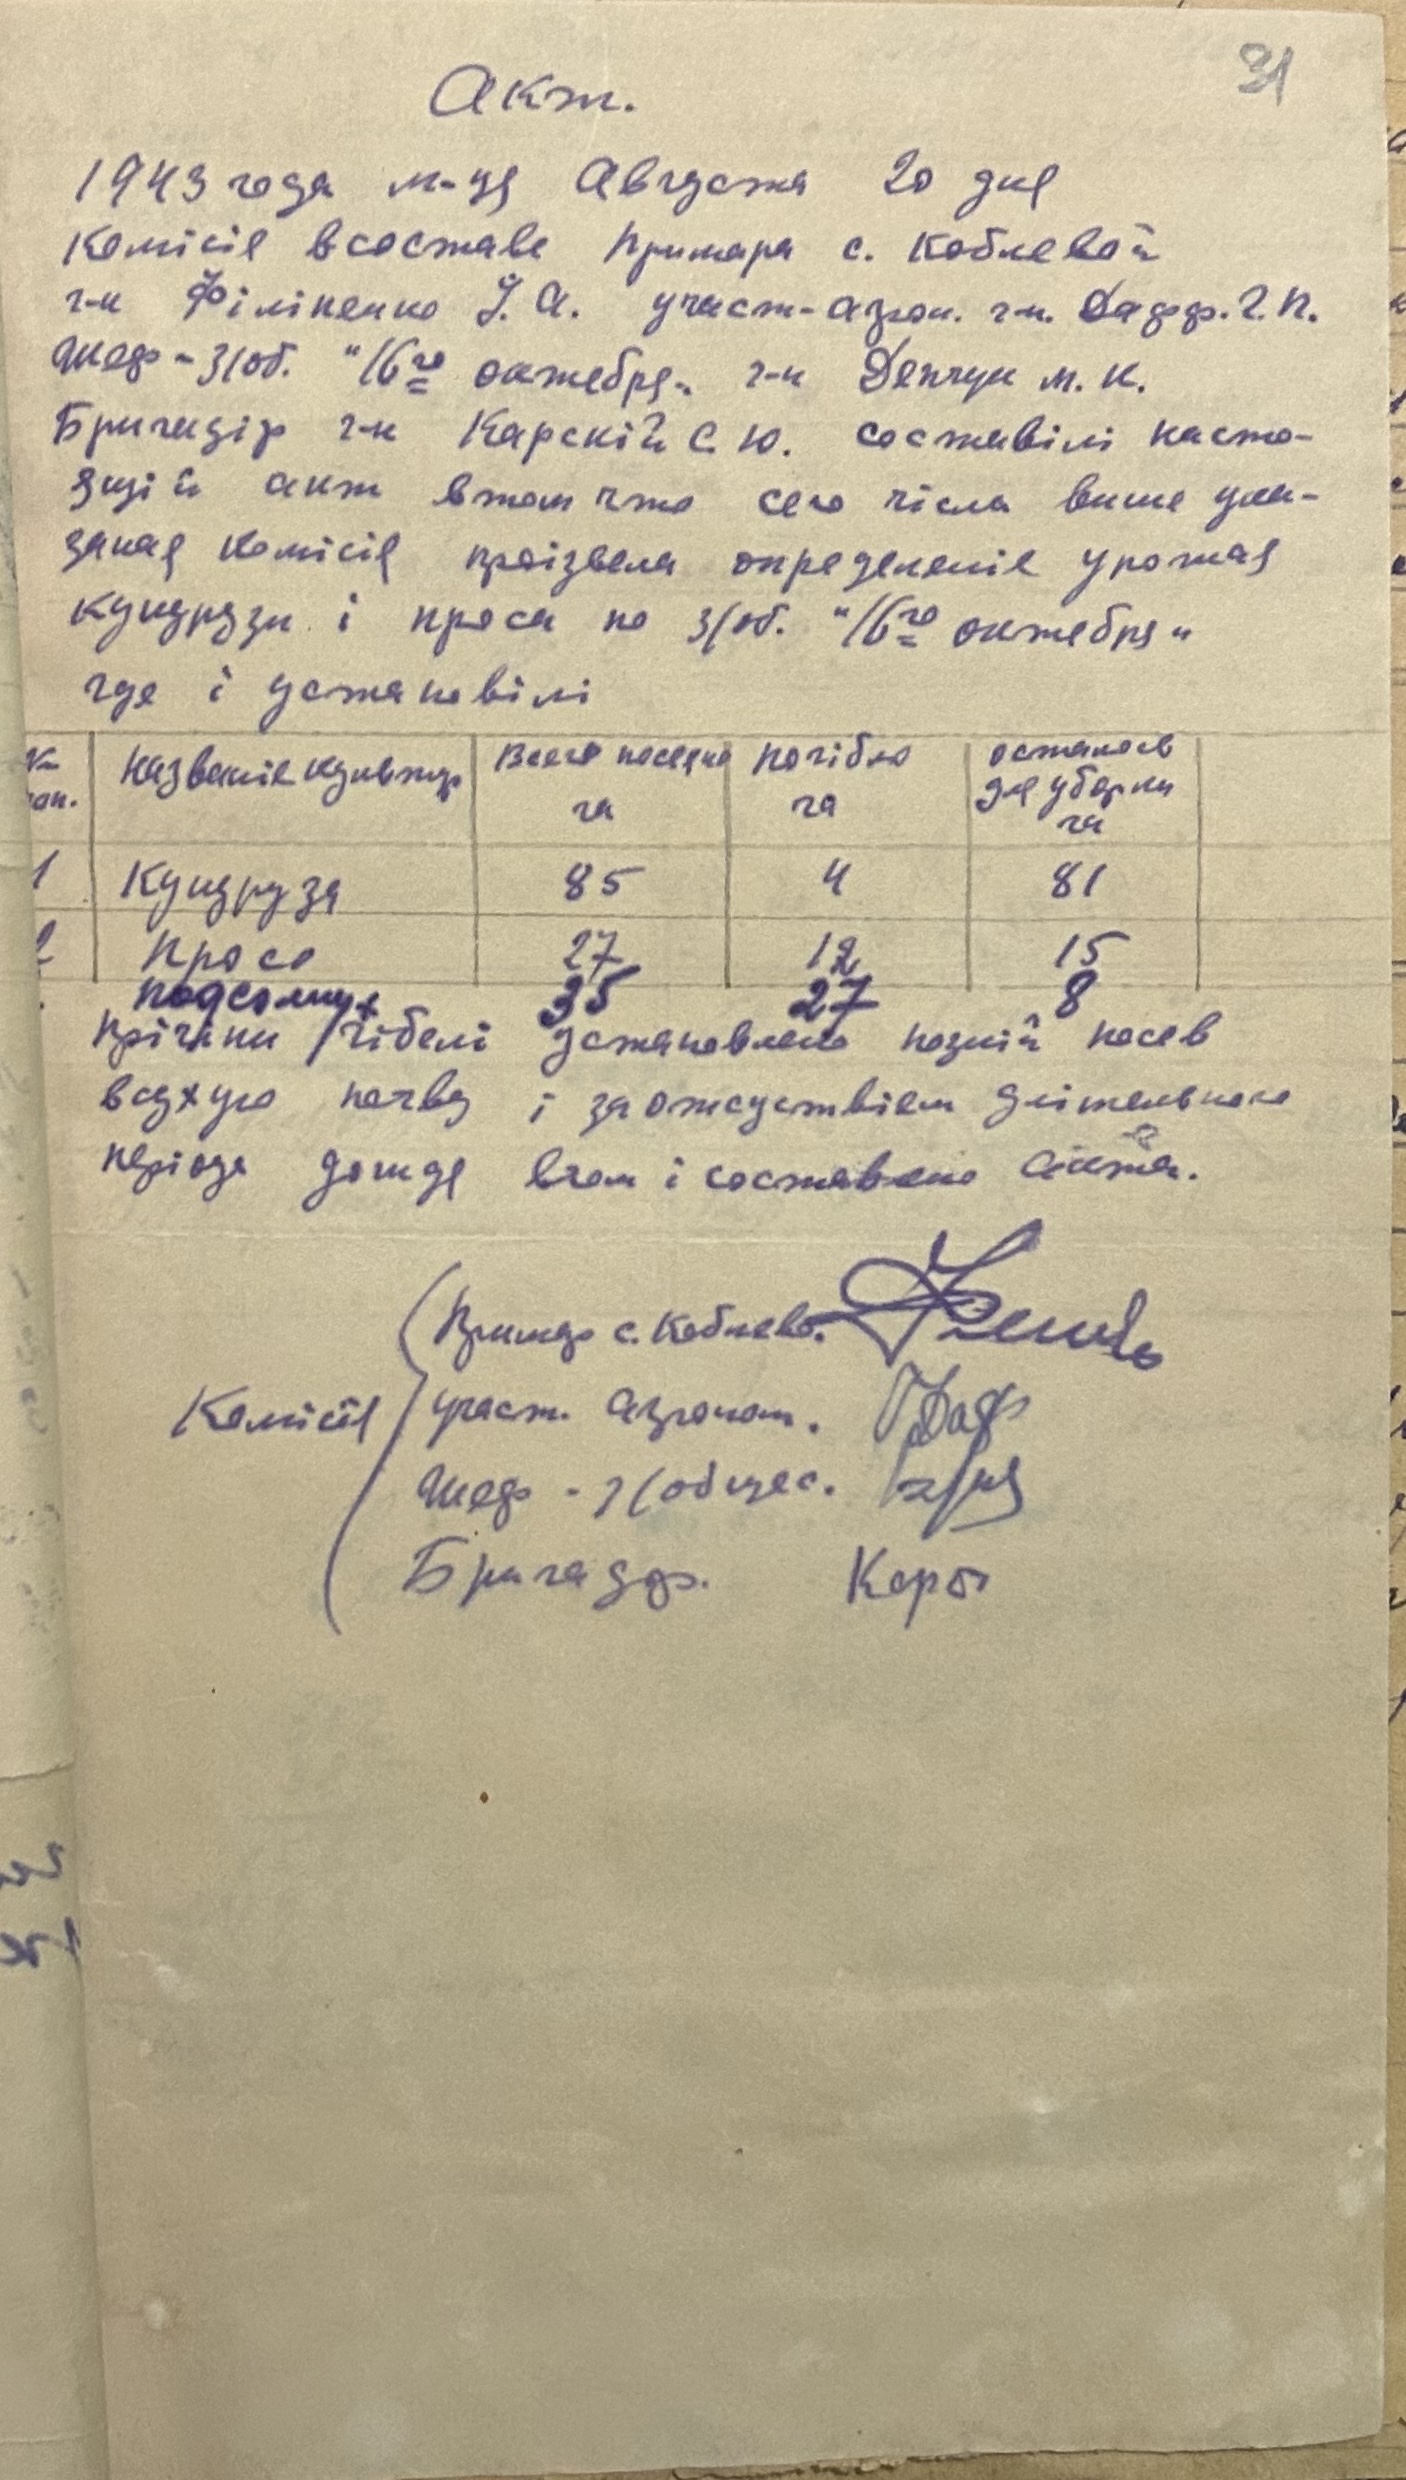 31
Акт.
1943 года м-ця Августа 20 дня
Комісія в составе Примара с. Коблевой
г-н Філіпенко І. А. участ-агрон. г-н. Дафф. Г. П.
Шеф-з/об. "16го октября" г-н Демчук М. К.
Бригадір г-н Карскій С. Ю. составілі насто-
ящій акт в том что сего чісла више ука-
заная комісія проізвела определеніе урожая
кукурузи і проса по з/об. "16го октября"
где і установілі
№ Названіе культур Всего посеяно га погібло га осталось для уборки га
1 Кукуруза 85 4 81
2 Просо 27 12 15
подсолнух 35 27 8
прічини гібелі установлено позній посев
в сухую почву і за отсутствіем длітельного
періода дождя в чом і составлено акта.
Комісія
Примар с. Коблево.
участ. агроном. Даф
Шеф - з/общес.
Бригадр. Карс